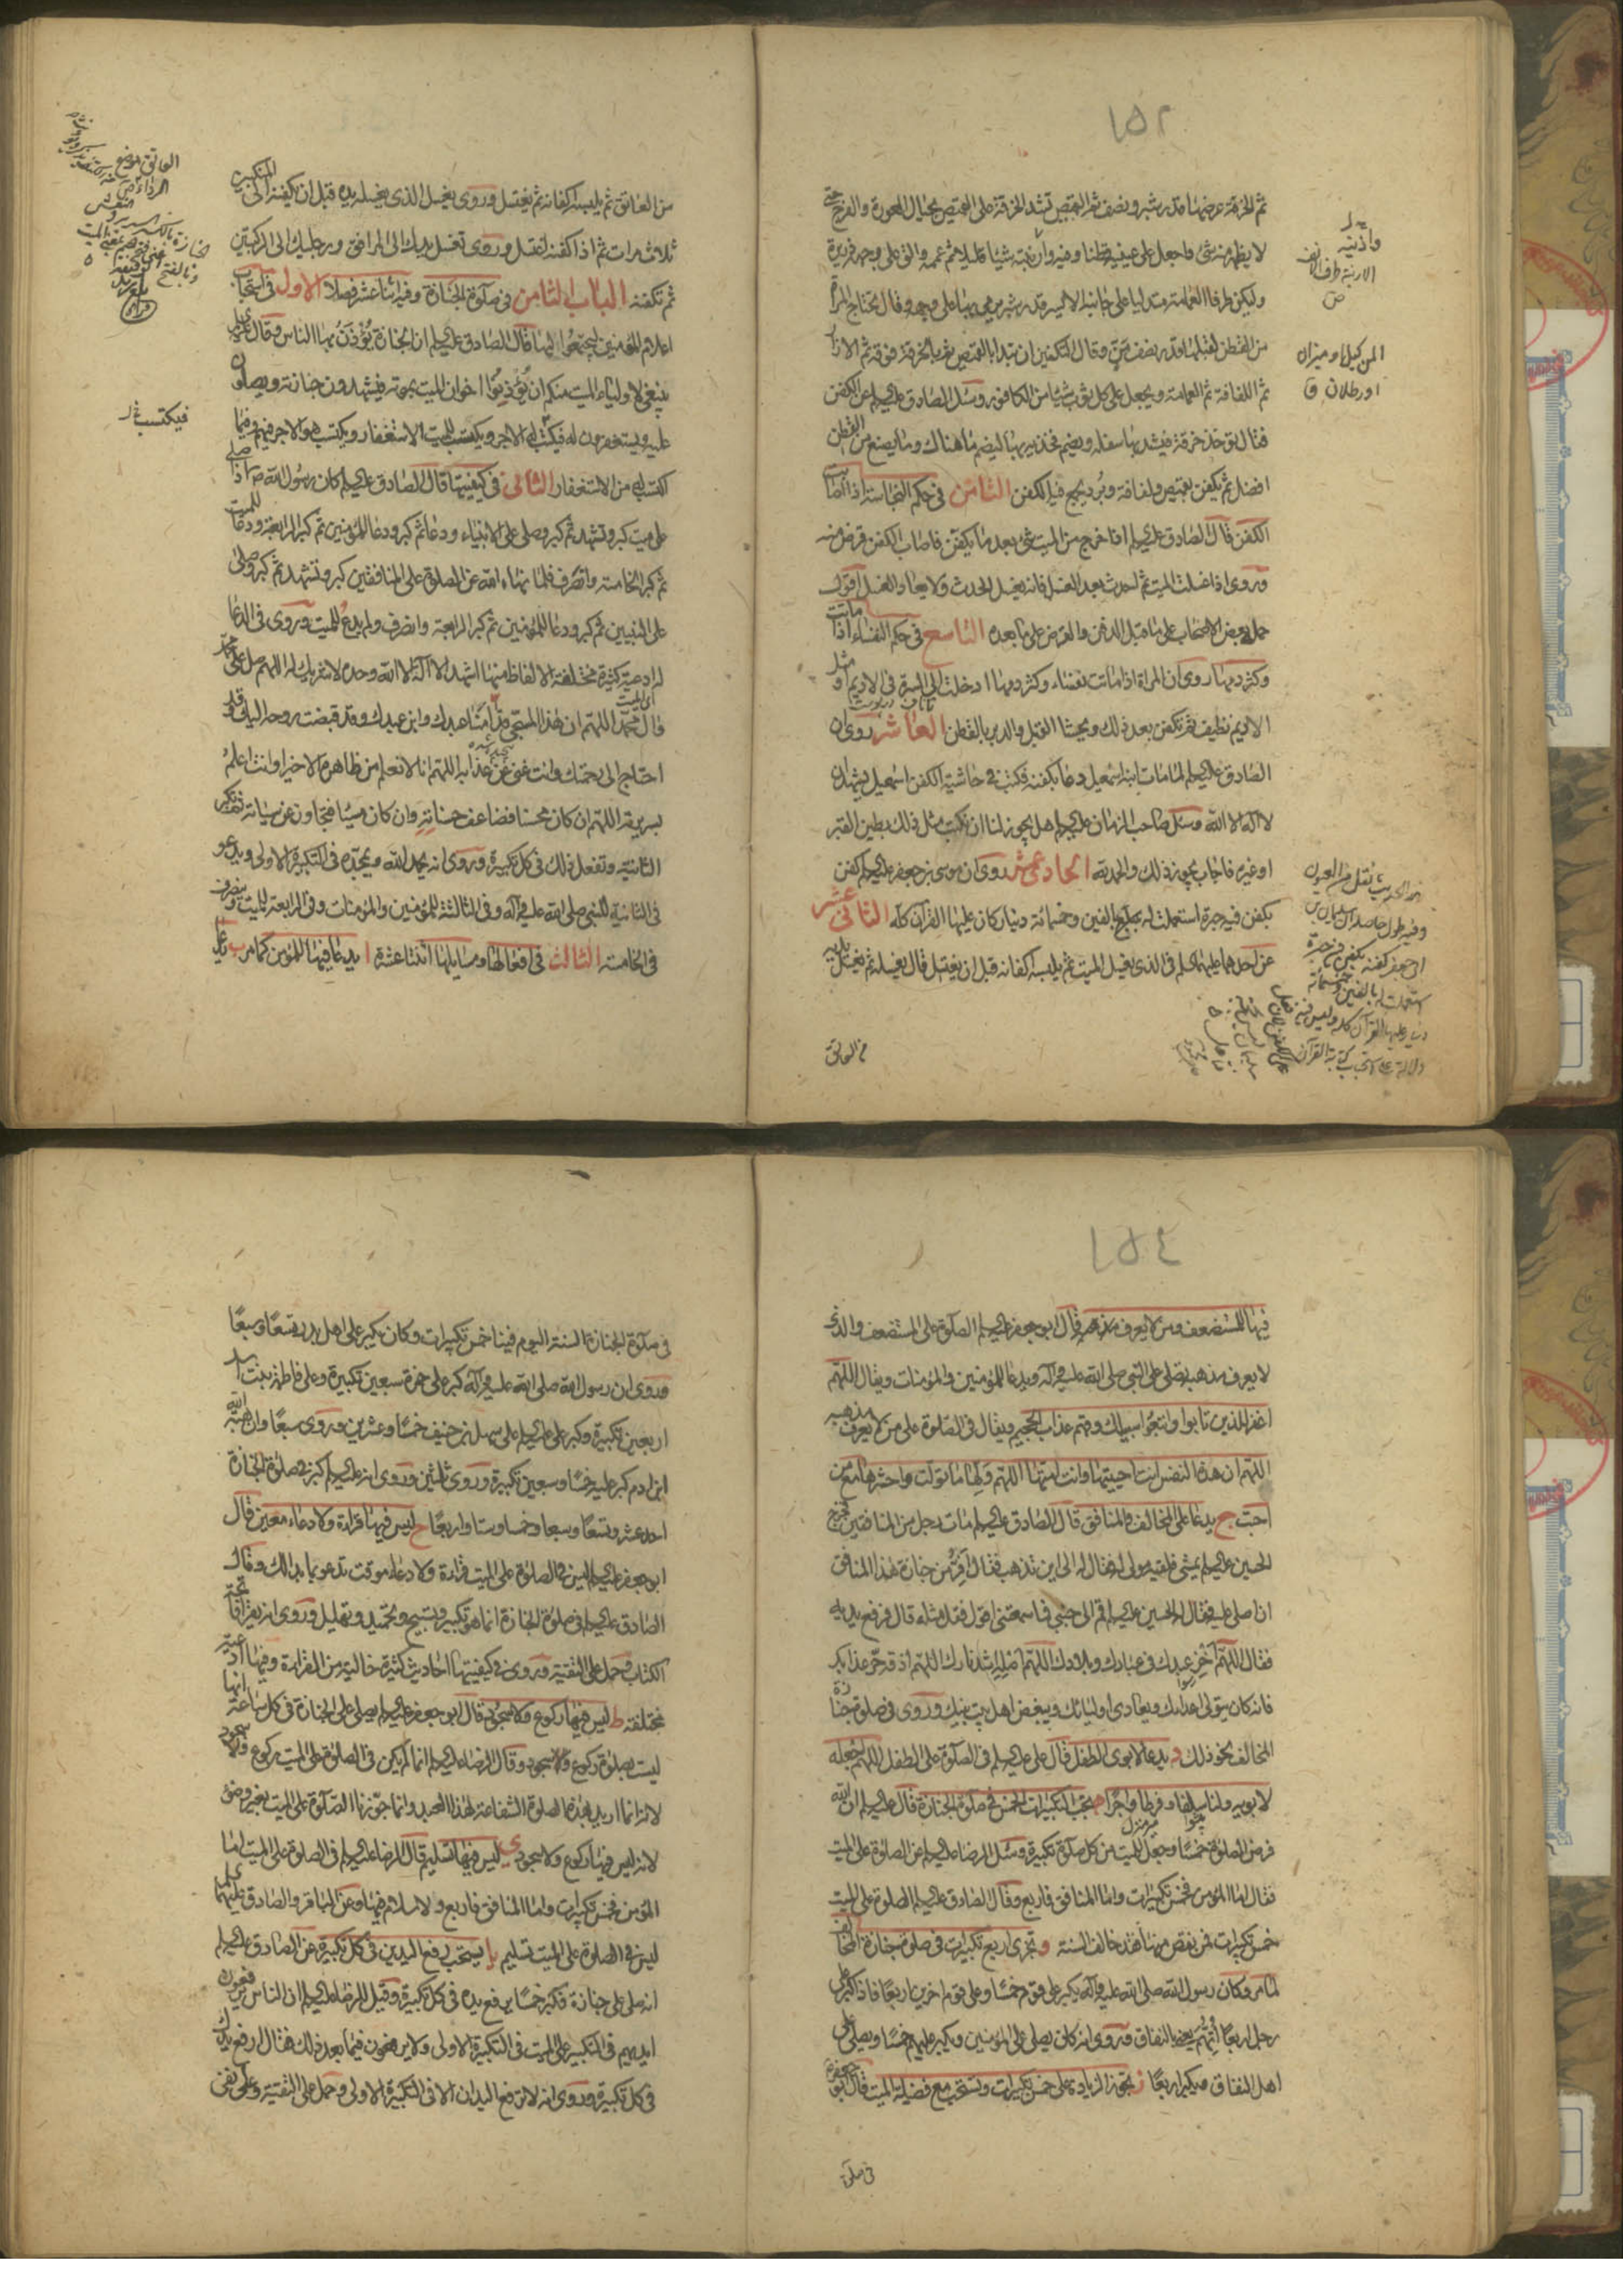 ١٥٢
ثم الخرقة عرضها قدر شبر ونصف ثم القميص تشد الخرقة على القميص بحيال العورة والفرج حتى
لا يظهر منه شئ واجعل على عينيه قطنا وفيه وارنبته شيئا قليلا ثم عممه والق على وجهه ذريرة
وليكن طرفا العمامة متدليا على جانبه الايسر قدر شبر يرمى بها على وجهه وقال يحتاج المرأة
من القطن لقبلها قدر نصف من وقال التكفين ان تبدا بالقميص ثم بالخرقة فوقه ثم الازار
ثم اللفافة ثم العمامة ويجعل على كل ثوب شيئا من الكافور وسئل الصادق عليه السلم عن الكفن
فقال تؤخذ خرقة فيشد بها سفله ويضم فخذيه بها ليضم ما هناك وما يصنع من القطن
افضل ثم يكفن بقميص ولفافة وبرد يجمع فيه الكفن الثامن في حكم النجاسة اذا اصابت
الكفن قال الصادق عليه السلم اذا خرج من الميت شئ بعد ما يكفن فاصاب الكفن قرض منه
وروى اذا غسلت الميت ثم احدث بعد الغسل فانه يغسل الحدث ولا يعاد الغسل اقول
حمل بعض الاصحاب على ما قبل الدفن والقرض على ما بعده التاسع في حكم النفساء اذا ماتت
وكثر دمها روى ان المراة اذا ماتت نفساء وكثر دمها ادخلت الى السرة في الاديم او مثل
الاديم نظيف ثم تكفن بعد ذلك ويحشا القبل والدبر بالقطن العاشر روى ان
الصادق عليه السلم لما مات ابنه اسمعيل دعا بكفنه فكتب في حاشية الكفن اسمعيل يشهد ان
لا اله الا الله وسئل صاحب الزمان عليه السلم هل يجوز لنا ان نكتب مثل ذلك بطين القبر
او غيره فاجاب يجوز ذلك والحمد لله الحادي عشر روى ان موسى بن جعفر عليه السلم كفن
بكفن فيه حبرة استعملت له بمبلغ بالفين وخمسائة دينار كان عليها القرآن كله الثاني عشر
عن احدهما عليهما السلم في الذي يغسل الميت ثم يلبسه اكفانه قبل ان يغتسل قال يغسله ثم يغسل يديه
من العاتق
وارنبته
الارنبة طرف الانف
ص
المن كيل او ميزان
او رطلان ق
من العاتق ثم يلبسه اكفانه ثم يغتسل وروى يغسل الذي يغسله يده قبل ان يكفنه الى المنكبين
ثلاث مرات ثم اذا كفنه اغتسل وروى تغسل يديك الى المرافق ورجليك الى الركبتين
ثم تكفنه الباب الثامن في صلوة الجنازة وفيه اثنا عشر فصلا الاول في استحباب
اعلام المؤمنين ليجتمعوا اليها قال الصادق عليه السلم ان الجنازة يؤذن بها الناس وقال
ينبغي لاولياء الميت منكم ان يؤذنوا اخوان الميت بموته فيشهدون جنازته ويصلون
عليه ويستغفرون له فيكتب لهم الاجر ويكتب للميت الاستغفار ويكتسب هو الاجر فيهم وفيما
اكتسب له من الاستغفار الثاني في كيفيتها قال الصادق عليه السلم كان رسول الله ص اذا صلى
على ميت كبر وتشهد ثم كبر وصلى على الانبياء ودعا ثم كبر ودعا للمؤمنين ثم كبر الرابعة ودعا للميت
ثم كبر الخامسة وانصرف فلما نهاه الله عن الصلوة على المنافقين كبر وتشهد ثم كبر وصلى
على النبيين ثم كبر ودعا للمؤمنين ثم كبر الرابعة وانصرف ولم يدع للميت وروى في الدعا
له ادعية كثيرة مختلفة الالفاظ منها اشهد ان لا اله الا الله وحده لا شريك له اللهم صل على محمد
وال محمد اللهم ان هذا المسجى قدامنا عبدك وابن عبدك وقد قبضت روحه اليك وقد
احتاج الى رحمتك وانت غني عن عذابه اللهم انا لا نعلم من ظاهره الا خيرا وانت اعلم
بسريرته اللهم ان كان محسنا فضاعف حسناته وان كان مسيئا فتجاوز عن سيئاته ثم تكبر
الثانية وتفعل ذلك في كل تكبيرة وروى انه يحمد الله ويمجده في التكبيرة الاولى ويدعو
في الثانية للنبي صلى الله عليه وآله وفي الثالثة للمؤمنين والمؤمنات وفي الرابعة للميت وينصرف
في الخامسة الثالث في افعالها ومسايلها اثنتا عشرة ا يدعا فيها للمؤمن كما مر ب يدعا
العاتق موضع
الرداء
فيكتسب
١٥٤
فيها للمستضعف ومن لا يعرف مذهبه قال ابو جعفر عليه السلم الصلوة على المستضعف والذي
لا يعرف مذهبه يصلى على النبي صلى الله عليه وآله ويدعا للمؤمنين والمؤمنات ويقال اللهم
اغفر للذين تابوا واتبعوا سبيلك وقهم عذاب الجحيم ويقال في الصلوة على من لا يعرف مذهبه
اللهم ان هذه النفس انت احييتها وانت امتها اللهم ولها ما تولت واحشرها مع من
احبت ج يدعا على المخالف والمنافق قال الصادق عليه السلم مات رجل من المنافقين فخرج
الحسين عليه السلم يمشي فلقيه مولى له فقال له الى اين تذهب فقال افر من جنازة هذا المنافق
ان اصلي عليه فقال له الحسين عليه السلم قم الى جنبي فما سمعتني اقول فقل مثله قال فرفع يديه
فقال اللهم اخز عبدك في عبادك وبلادك اللهم اصله اشد نارك اللهم اذقه حر عذابك
فانه كان يتولى اعداءك ويعادي اوليائك ويبغض اهل بيت نبيك وروى في صلوة جنازة
المخالف نحو ذلك د يدعا لابوى الطفل قال علي عليه السلم في الصلوة على الطفل اللهم اجعله
لابويه ولنا سلفا وفرطا واجرا ه تجب التكبيرات الخمس في صلوة الجنازة قال عليه السلم ان الله
فرض الصلوة خمسا وجعل للميت من كل صلوة تكبيرة وسئل الرضا عليه السلم عن الصلوة على الميت
فقال اما المؤمن فخمس تكبيرات واما المنافق فاربع وقال الصادق عليه السلم الصلوة على الميت
خمس تكبيرات فمن نقص منها فقد خالف السنة و تجزى اربع تكبيرات في صلوة جنازة المخالف
لما مر وكان رسول الله صلى الله عليه وآله يكبر على قوم خمسا وعلى قوم اخرين اربعا فاذا كبر على
رجل اربعا اتهم يعني بالنفاق وروى انه كان يصلي على المؤمنين ويكبر عليهم خمسا ويصلي على
اهل النفاق فيكبر اربعا ز تجوز الزيادة على خمس تكبيرات وتستحب مع فضيلة الميت قال ابو جعفر ع
في صلوة
في صلوة الجنازة السنة اليوم فينا خمس تكبيرات وكان يكبر على اهل بدر تسعا وسبعا
وروى ان رسول الله صلى الله عليه وآله كبر على حمزة سبعين تكبيرة وعلى فاطمة بنت اسد
اربعين تكبيرة وكبر علي عليه السلم على سهل بن حنيف خمسا وعشرين وروى سبعا وان هبة الله
ابن ادم كبر عليه خمسا وسبعين تكبيرة وروى ثلثين وروى انه عليه السلم كبر في صلوة الجنازة
احد عشر وتسعا وسبعا وخمسا وستا واربعا ح ليس فيها قراءة ولا دعاء معين قال
ابو جعفر عليه السلم ليس في الصلوة على الميت قراءة ولا دعاء موقت تدعو بما بدا لك وقال
الصادق عليه السلم في صلوة الجنازة انما هو تكبير وتسبيح وتحميد وتهليل وروى انه يقرأ فاتحة
الكتاب وحمل على التقية وروى في كيفيتها احاديث كثيرة خالية من القراءة وفيها ادعية
مختلفة ط ليس فيها ركوع ولا سجود قال ابو جعفر عليه السلم يصلى على الجنازة في كل ساعة انها
ليست بصلوة ركوع ولا سجود وقال الرضا عليه السلم انما لم يكن في الصلوة على الميت ركوع ولا سجود
لانه انما اريد بهذه الصلوة الشفاعة لهذا العبد وانما جوزنا الصلوة على الميت بغير وضوء
لانه ليس فيها ركوع ولا سجود ي ليس فيها تسليم قال الرضا عليه السلم في الصلوة على الميت اما
المؤمن فخمس تكبيرات واما المنافق فاربع ولا سلام فيها وعن الباقر والصادق عليهما السلم
ليس في الصلوة على الميت تسليم يا يستحب رفع اليدين في كل تكبيرة عن الصادق عليه السلم
انه صلى على جنازة فكبر خمسا يرفع يده في كل تكبيرة وقيل للرضا عليه السلم ان الناس يرفعون
ايديهم في التكبير على الميت في التكبيرة الاولى ولا يرفعون فيما بعد ذلك فقال ارفع يدك
في كل تكبيرة وروى انه لا ترفع اليدان الا في التكبيرة الاولى وحمل على التقية وعلى نفى